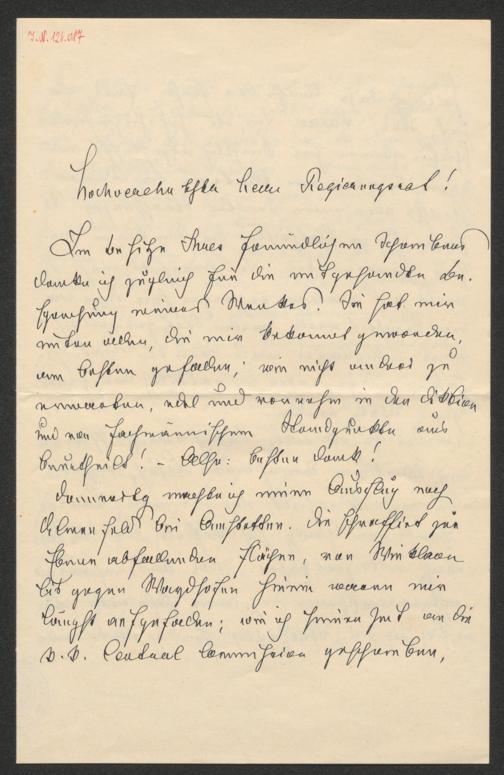 J.N. 121.017
Hochverehrtester Herr Regierungsrat!
Im Besitze Ihres freundlichen Schreibens
danke ich zugleich für die mitgesandte Be-
sprechung meines Werkes. Sie hat mir
unter allen, die mir bekannt geworden,
am besten gefallen; wie nicht anders zu
erwarten, edel und vornehm in der Diktion
und von fachmännischem Standpunkte aus
beurtheilt! – Also: besten Dank!
Donnerstag machte ich einen Ausflug nach
bei Amstetten. Die zur
abfallenden Flächen, von Winklarn
bis gegen Waydhofen hinein waren mir
längst aufgefallen; wie ich seiner Zeit an die
k. k. Central Commission geschrieben,